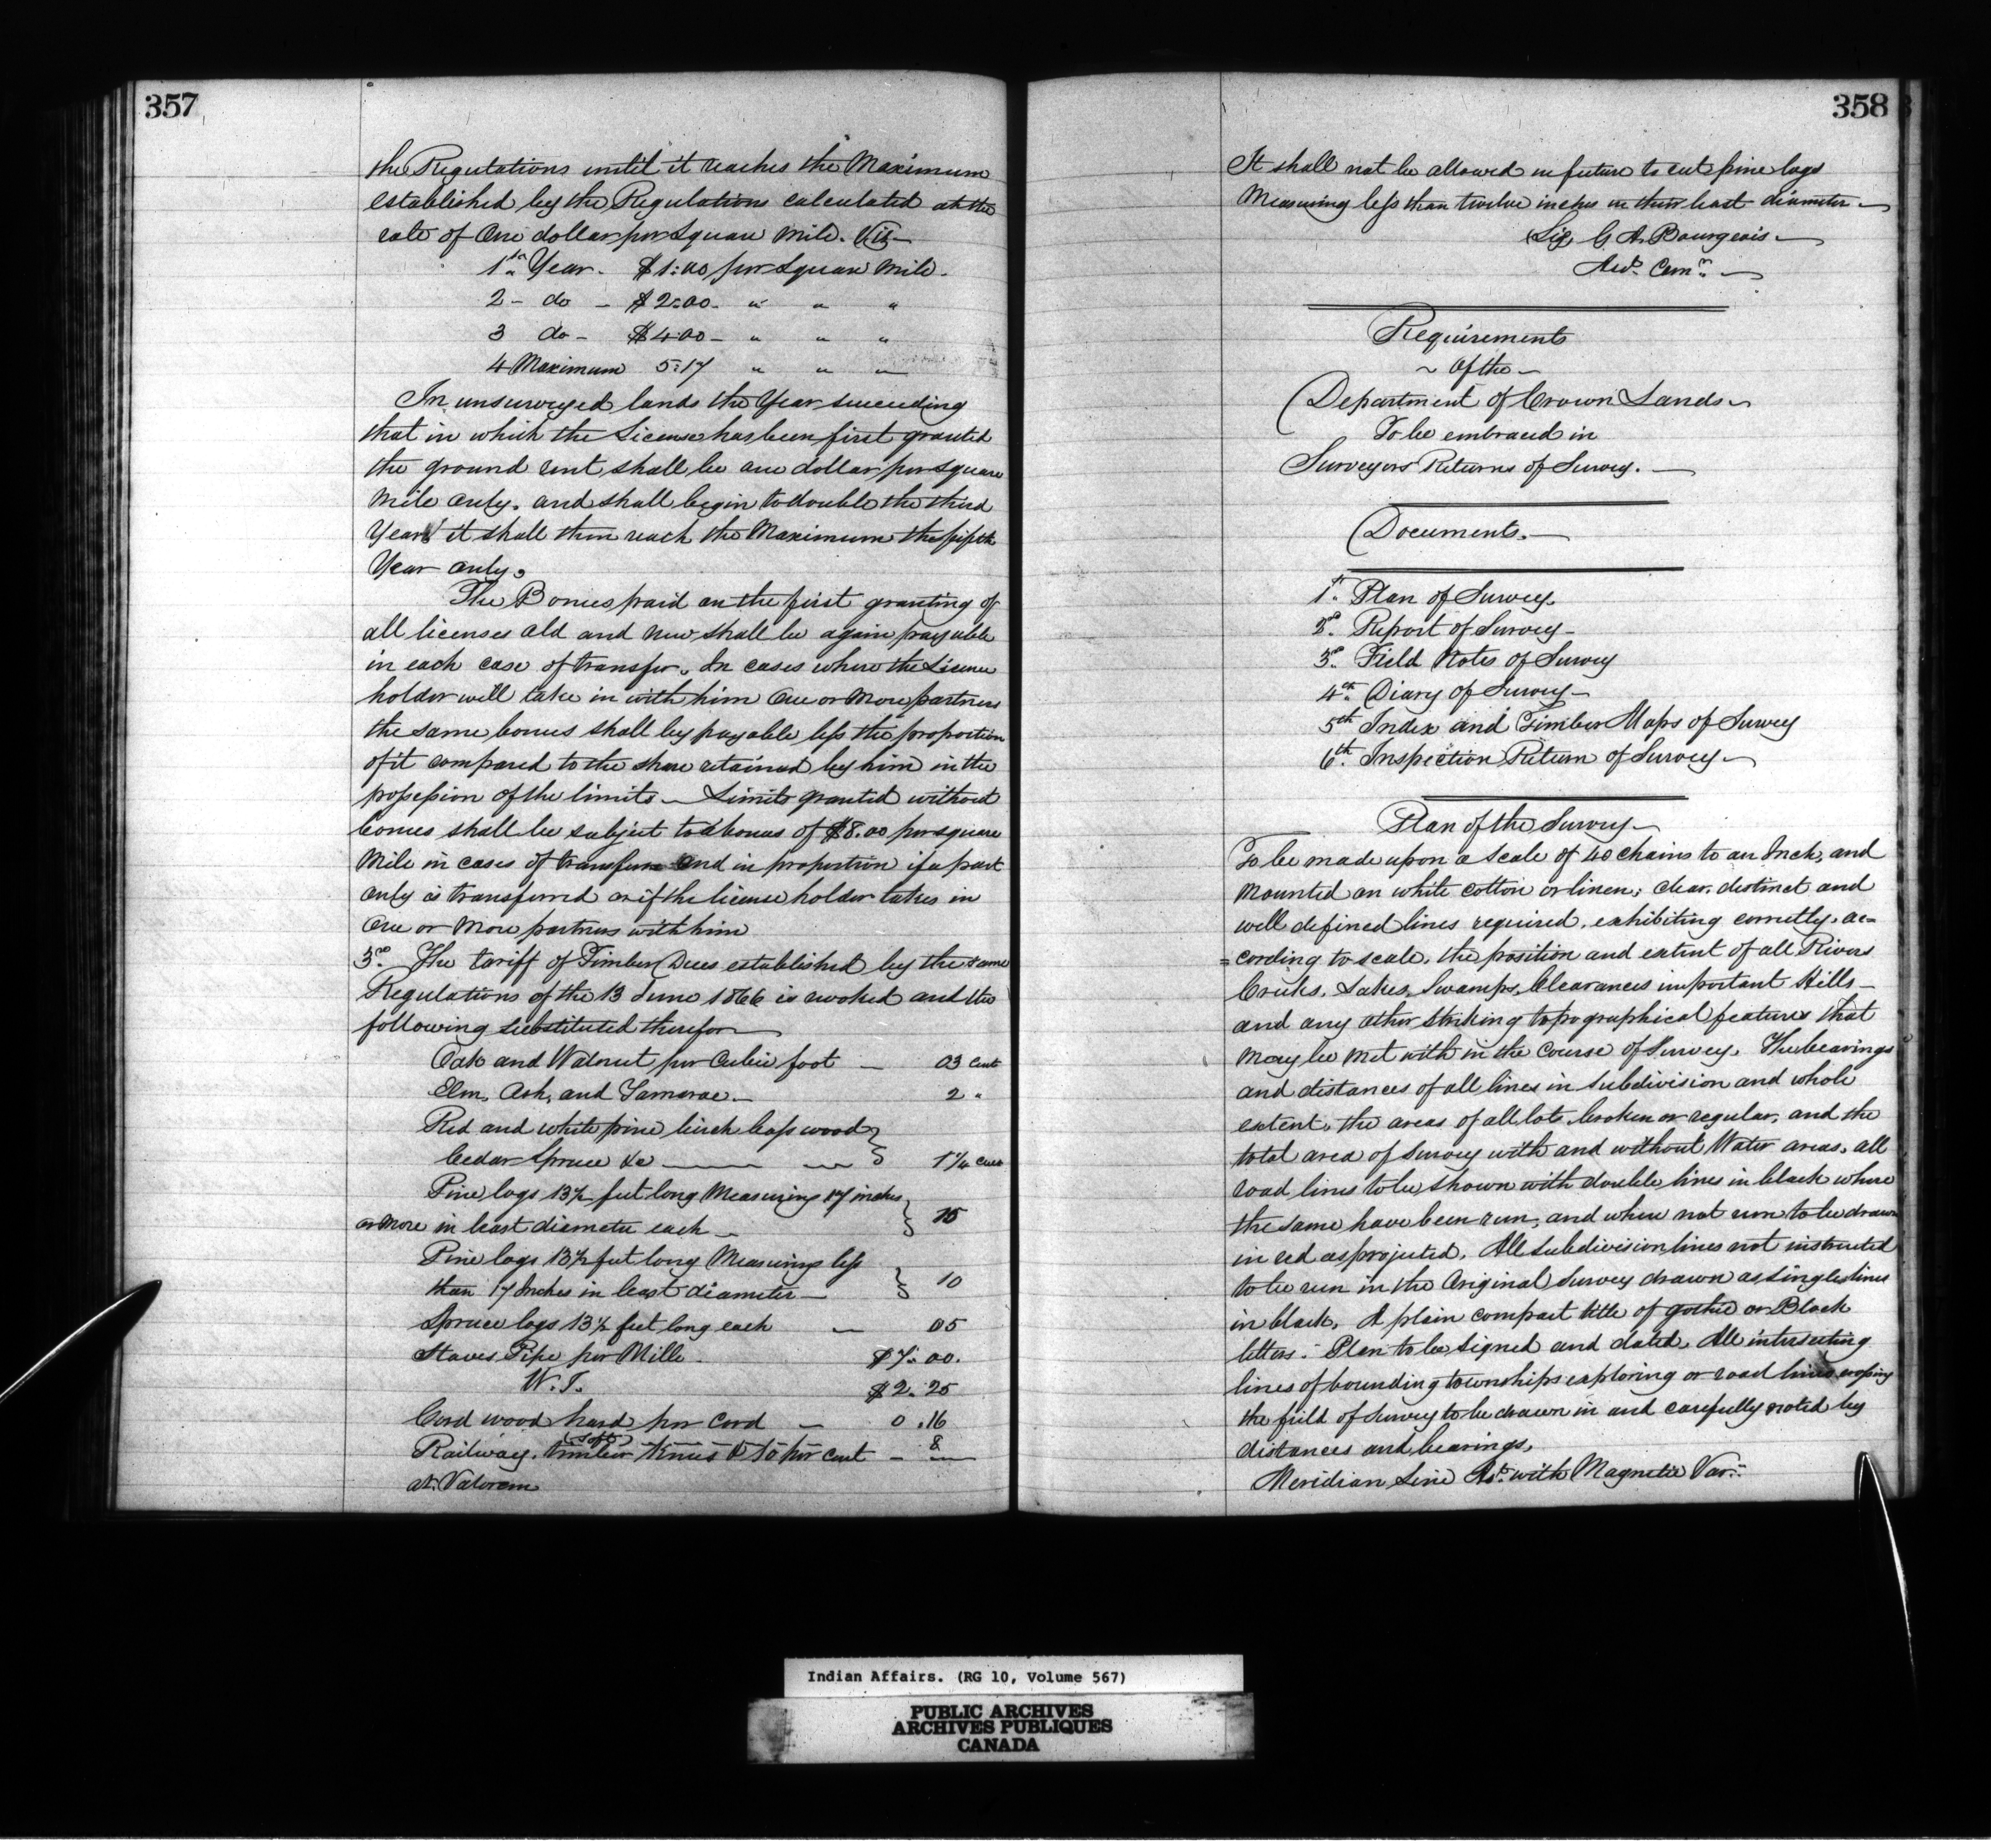 357
the Regulations until it reaches the Maximum
established by the Regulations calculated at the
rate of One dollar per Square Mile. Viz
1st Year - $1:00 per Square Mile.
2 - do - $2:00 - " " "
3 do - $4:00 - " " "
4 Maximum 5:17 " " "
In unsurveyed lands the Year succeeding
that in which the License has been first granted
the ground rent shall be one dollar per Square
Mile only. and shall begin to double the third
Year it shall then reach the Maximum the fifth
Year only.
The Bonus paid on the first granting of
all licenses old and new shall be again payable
in each case of transfer. In cases where the License
holder will take in with him One or More partners
the same bonus shall by payable less the proportion
of it compared to the share retained by him in the
possession of the limits - Limits granted without
bonus shall be subject to a bonus of $8.00 per square
Mile in cases of transfer and in proportion if a part
only is transferred or if the license holder takes in
One or More partners with him
3rd. The tariff of Timber Dues established by the same
Regulations of the 13 June 1866 is revoked and the
following substituted therefor
Oak and Walnut per Cubic foot - 03 cent
Elm, Ash, and Tamarac - 2 "
Red and white pine birch bass wood
Cedar Spruce &c 1 1/4 cent
Pine logs 13 1/2 feet long Measuring 17 inches
or More in least diameter each - 15
Pine logs 13 1/2 feet long Measuring less
than 17 Inches in least diameter - 10
Spruce logs 13 1/2 feet long each - 05
Staves Pipe per Mille - $7:00.
W.I. $2.25
Cord wood hard per Cord - 0.16
(soft) 8
Railway. timber Knees 10 per cent -
at Valorem
358
It shall not be allowed in future to cut pine logs
Measuring less than twelve inches in their least diameter -
Sig. G. A. Bourgeois -
Asst. Comr. -
Requirements
~ Of the ~
Department of Crown Lands ~
To be embraced in
Surveyors Returns of Survey. -
Documents. -
1st. Plan of Survey.
2d. Report of Survey -
3d. Field Notes of Survey
4th. Diary of Survey -
5th Index and Timber Maps of Survey
6th. Inspection Return of Survey -
Plan of the Survey -
To be made upon a Scale of 40 chains to an Inch, and
Mounted on white cotton or linen; clear, distinct and
well defined lines required, exhibiting correctly, ac=
=cording to scale, the position and extent of all Rivers
Creeks, Lakes, Swamps, Clearances important Hills -
and any other striking topographical features that
May be Met with in the Course of Survey. The bearings
and distances of all lines in Subdivision and whole
extent, the areas of all lots, broken or regular, and the
total area of Survey with and without Water areas, all
road lines to be shown with double lines in black where
the same have been run, and when not run to be drawn
in red as projected. All Subdivision lines not instructed
to be run in the Original Survey drawn as single lines
in black. A plain compact title of gothic or Block
letters. Plan to be signed and dated. All intersecting
lines of bounding townships exploring or road lines crossing
the field of Survey to be drawn in and carefully noted by
distances and bearings.
Meridian Line Ast. with Magnetic Varn.
Indian Affairs. (RG 10, Volume 567)
PUBLIC ARCHIVES
ARCHIVES PUBLIQUES
CANADA